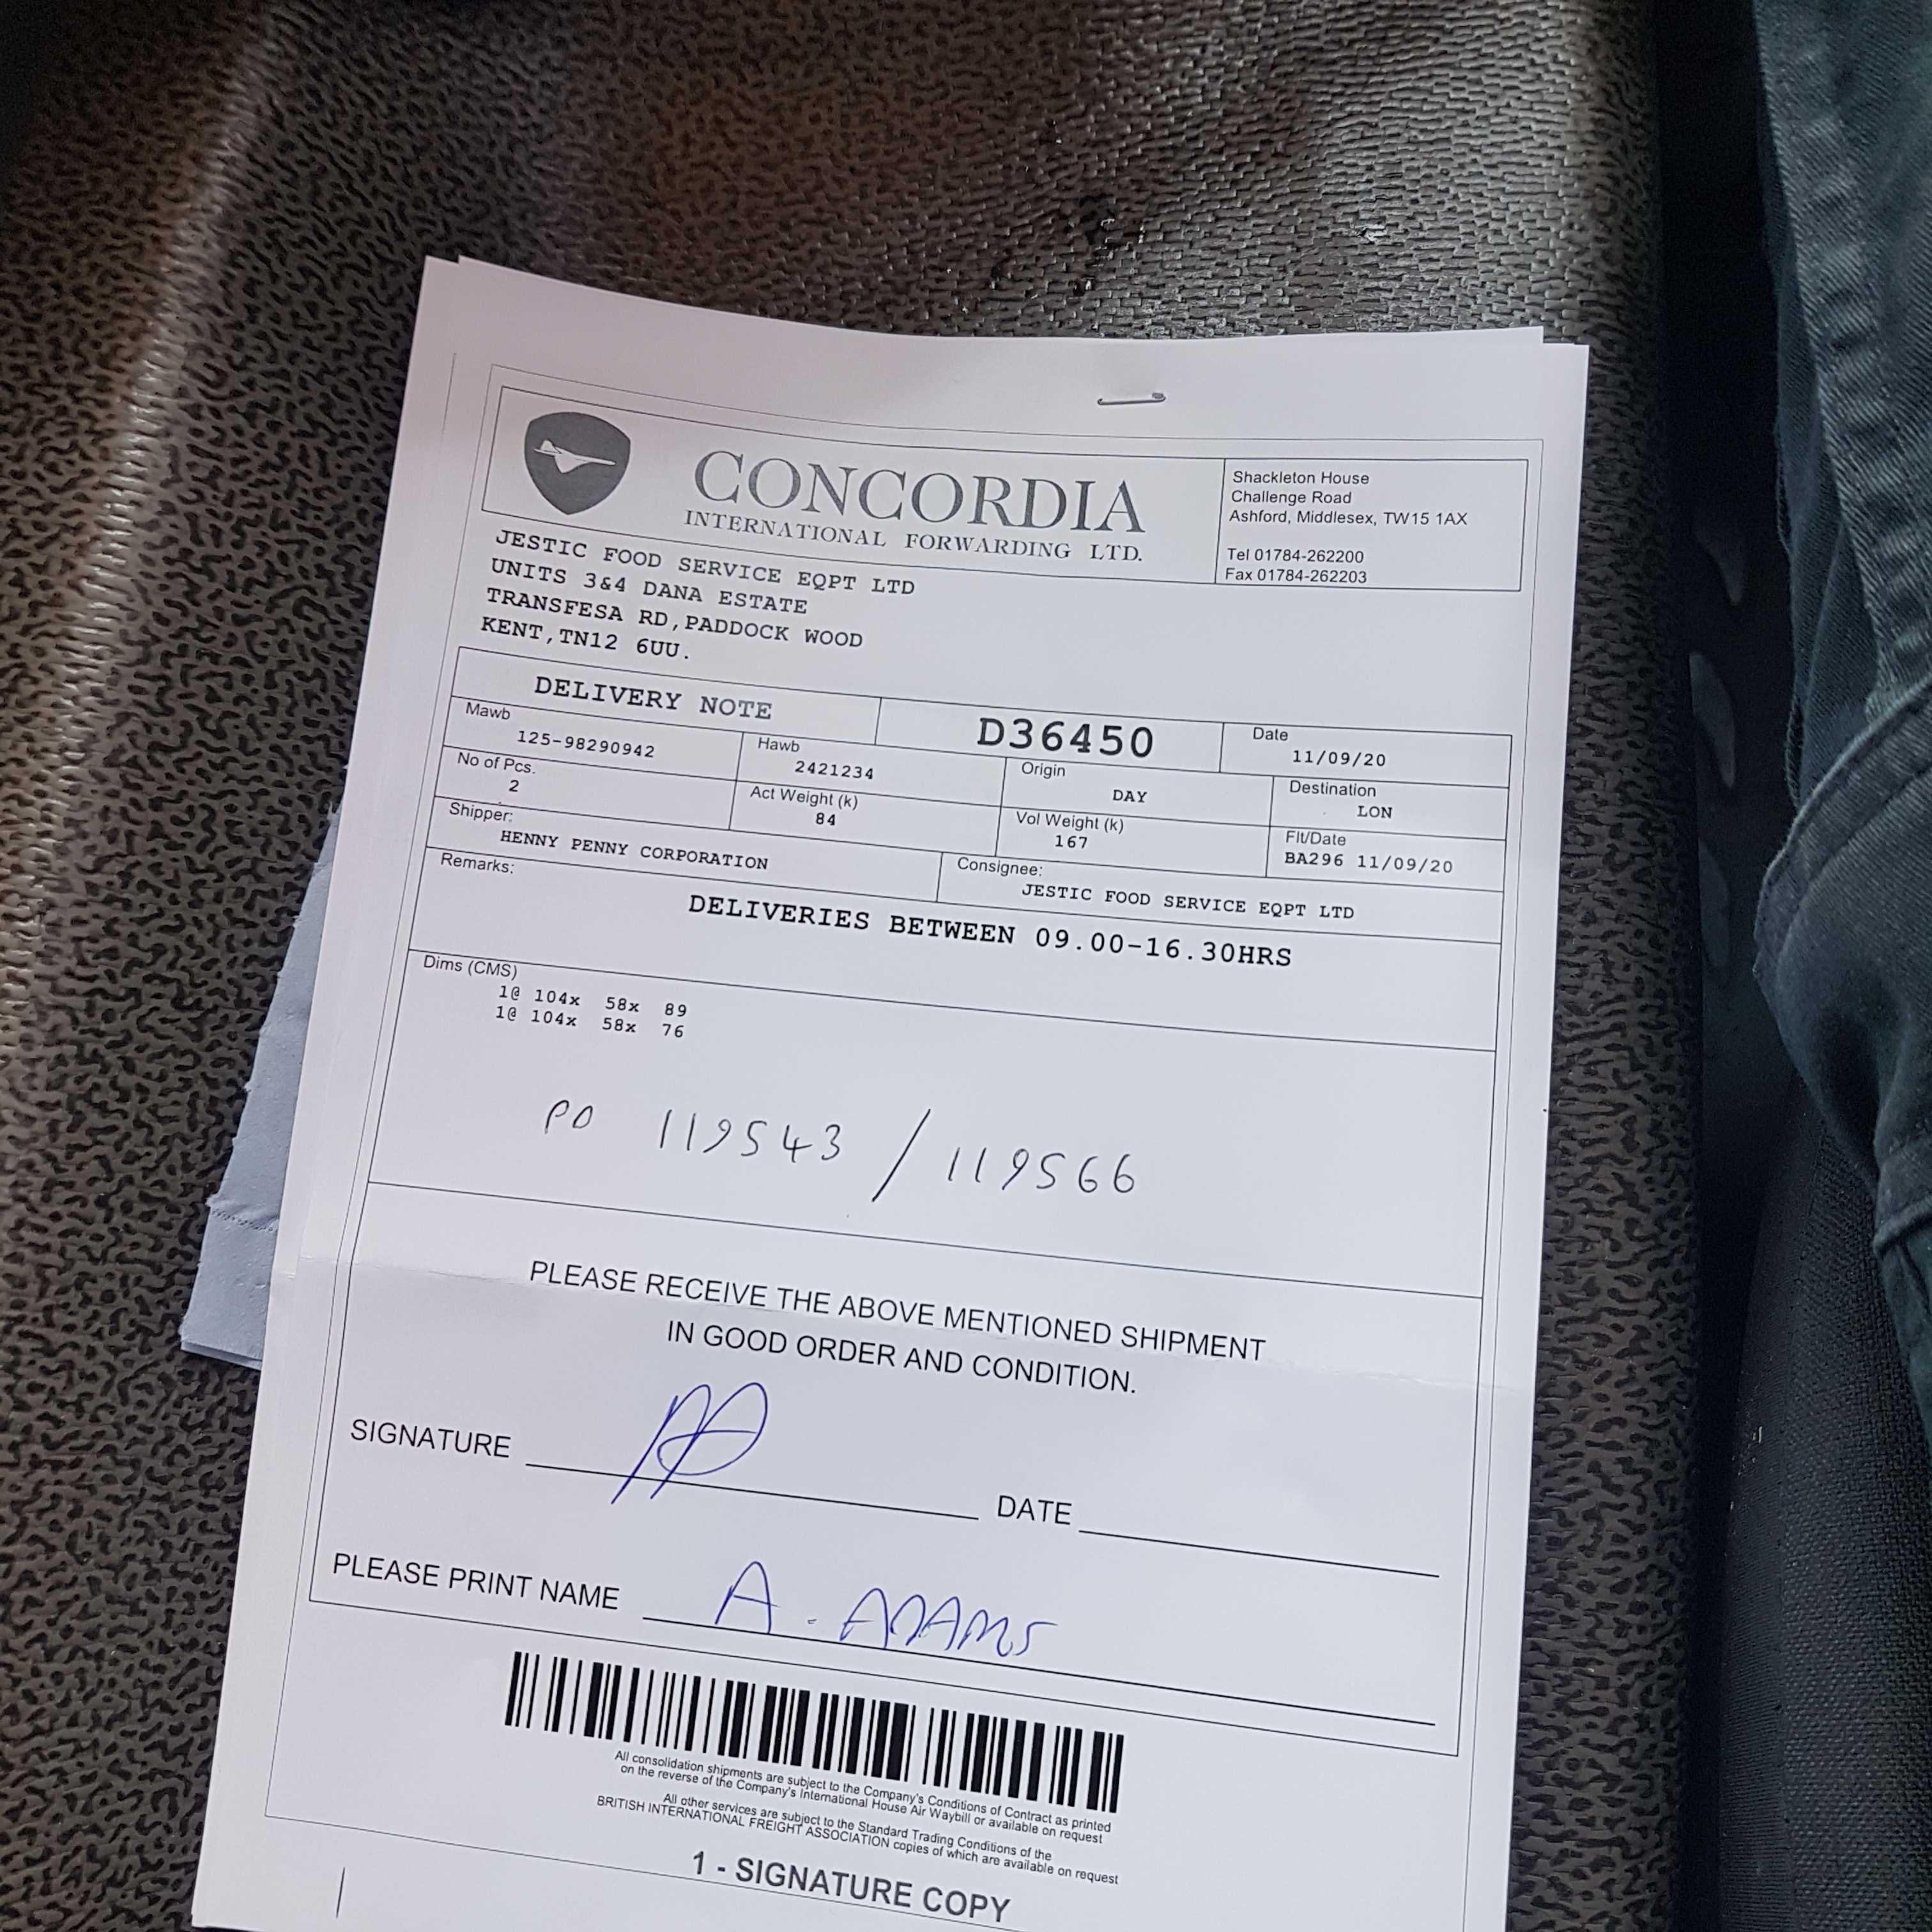 CONCORDIA
INTERNATIONAL FORWARDING LTD.
Shackleton House
Challenge Road
Ashford, Middlesex, TW15 1AX
Tel 01784-262200
Fax 01784-262203
JESTIC FOOD SERVICE EQPT LTD
UNITS 3&4 DANA ESTATE
TRANSFESA RD,PADDOCK WOOD
KENT,TN12 6UU.
DELIVERY NOTE
D36450
Date
11/09/20
Mawb
125-98290942
Hawb
2421234
Origin
DAY
Destination
LON
No of Pcs.
2
Act Weight (k)
84
Vol Weight (k)
167
Flt/Date
BA296 11/09/20
Shipper:
HENNY PENNY CORPORATION
Consignee:
JESTIC FOOD SERVICE EQPT LTD
Remarks:
DELIVERIES BETWEEN 09.00-16.30HRS
Dims (CMS)
1@ 104x 58x 89
1@ 104x 58x 76
PO 119543 / 119566
PLEASE RECEIVE THE ABOVE MENTIONED SHIPMENT
IN GOOD ORDER AND CONDITION.
SIGNATURE
DATE
PLEASE PRINT NAME A. ADAMS
All consolidation shipments are subject to the Company's Conditions of Contract as printed
on the reverse of the Company's International House Air Waybill or available on request
All other services are subject to the Standard Trading Conditions of the
BRITISH INTERNATIONAL FREIGHT ASSOCIATION copies of which are available on request
1 - SIGNATURE COPY